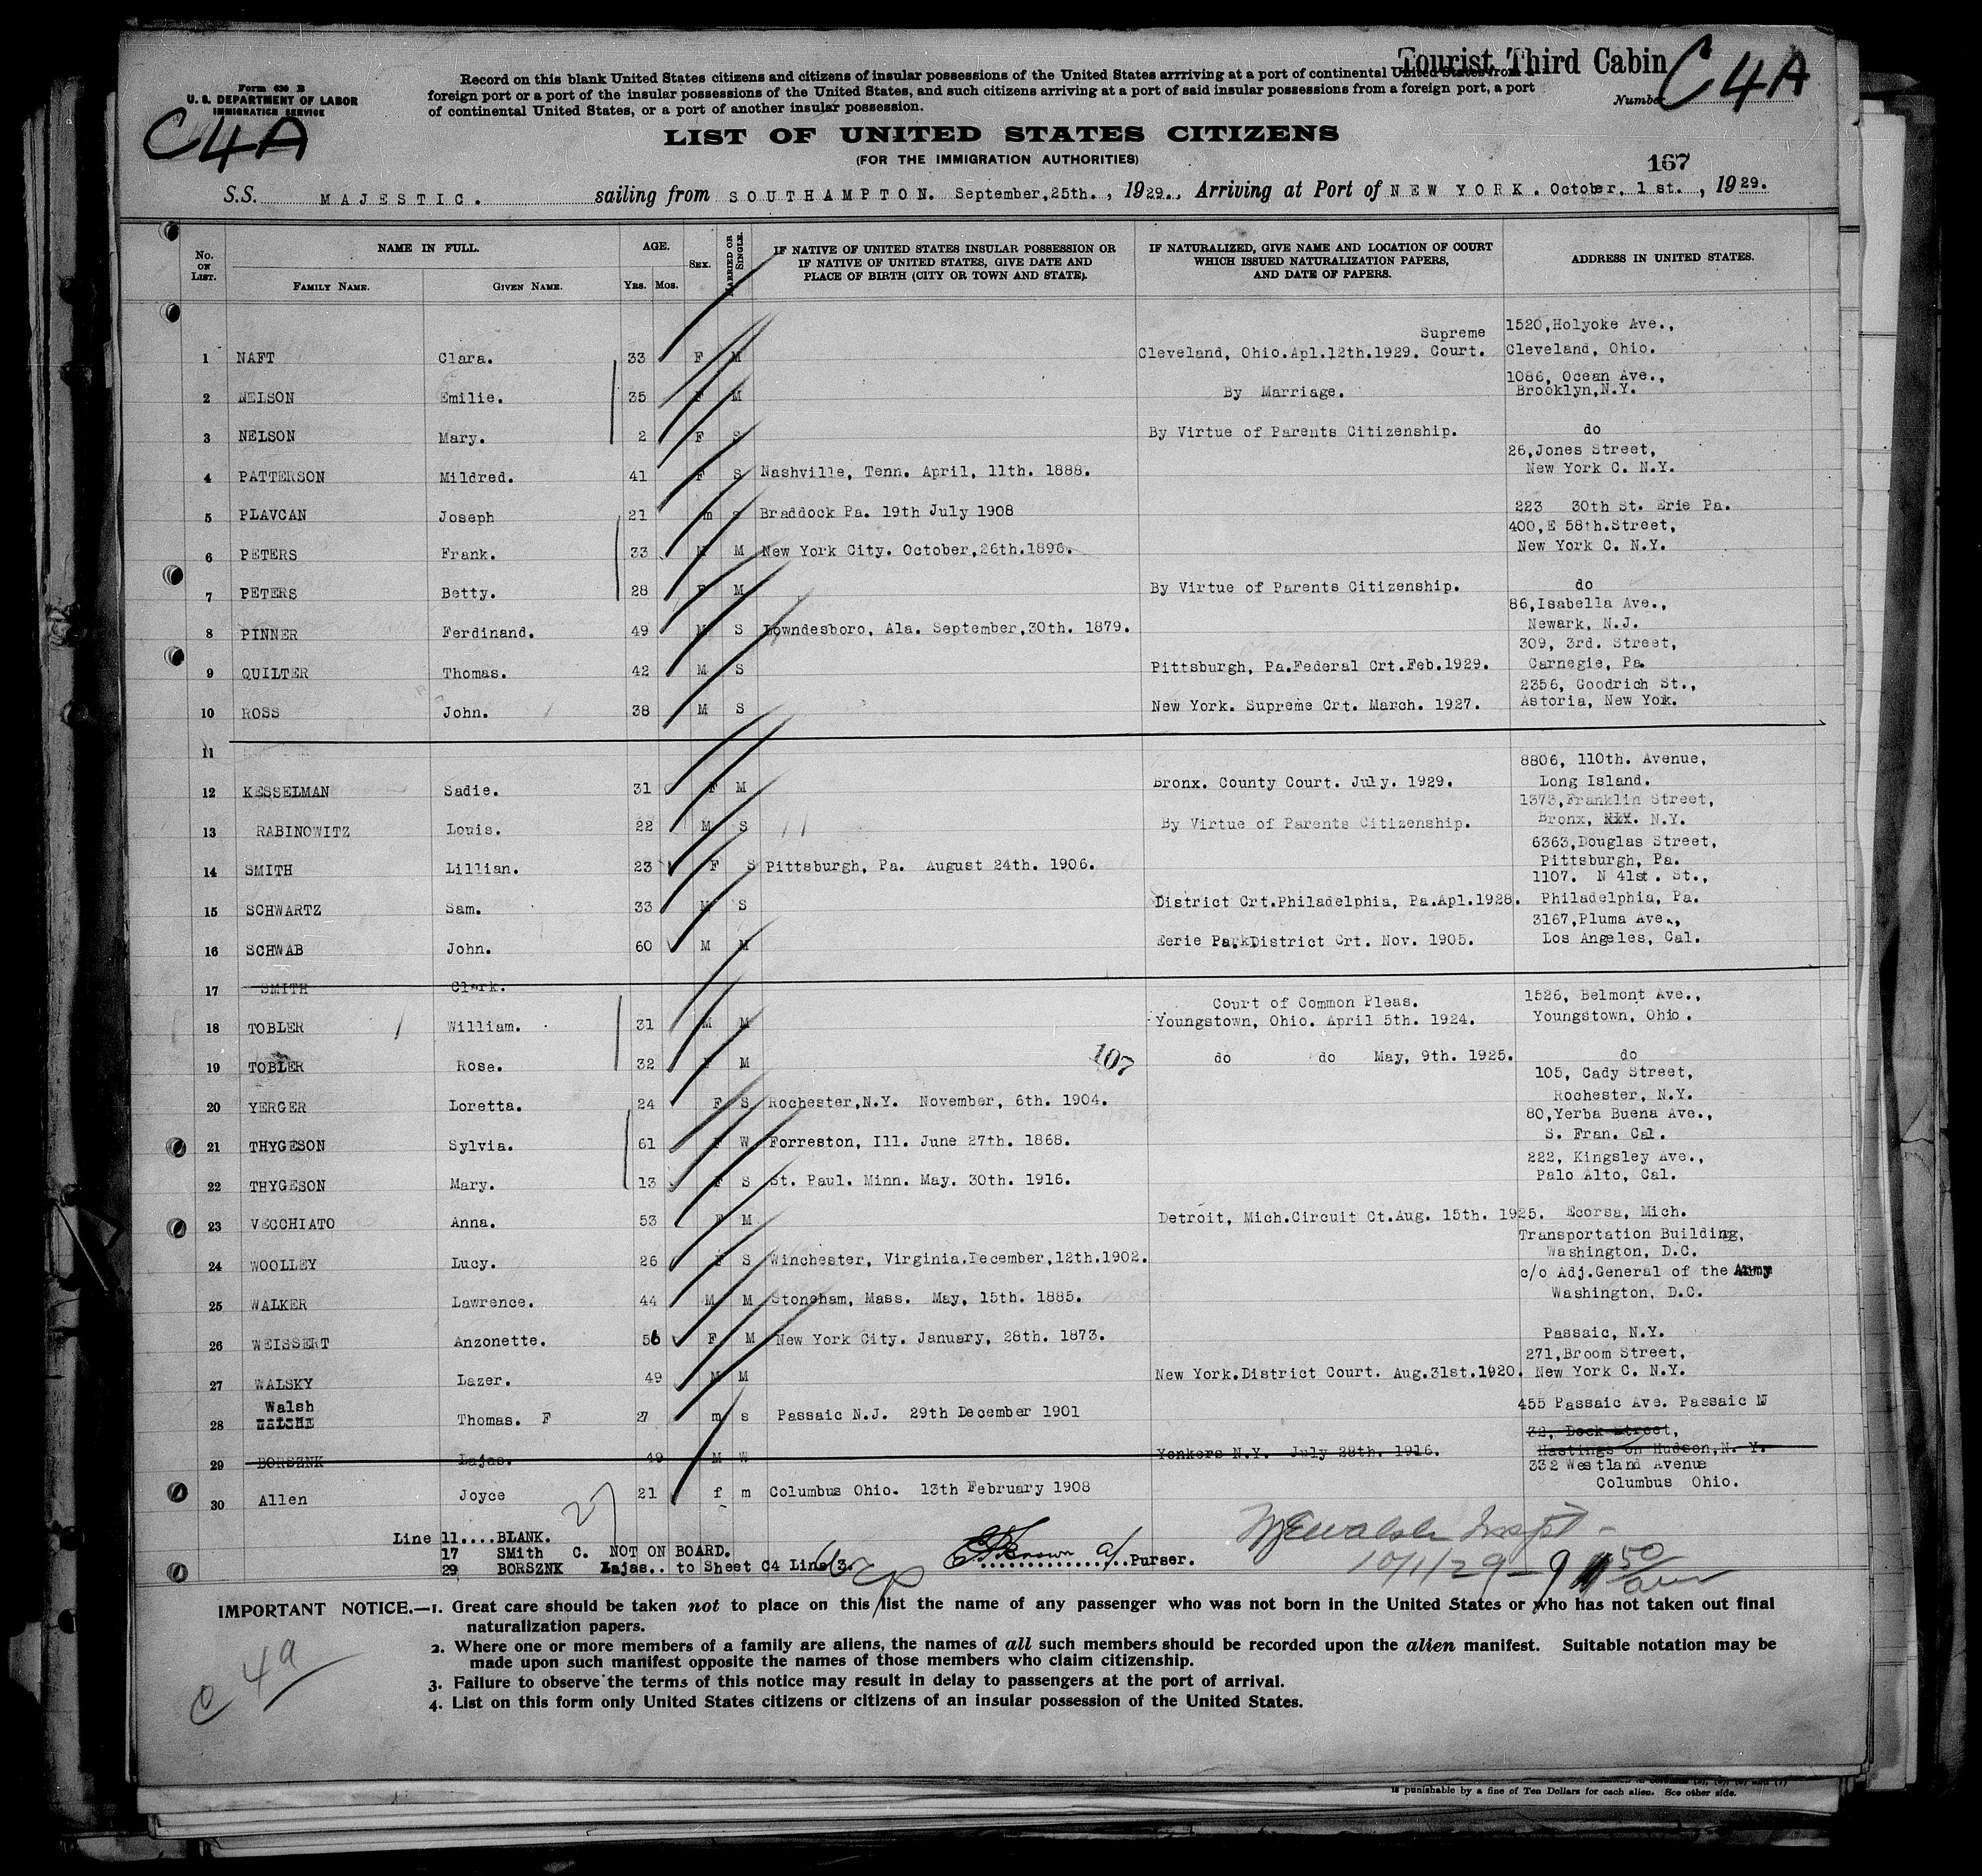 Tourist Third Cabin
C4A
Form 630 B
U. S. DEPARTMENT OF LABOR
IMMIGRATION SERVICE
C4A
Record on this blank United States citizens and citizens of insular possessions of the United States arrriving at a port of continental United States from a
foreign port or a port of the insular possessions of the United States, and such citizens arriving at a port of said insular possessions from a foreign port, a port
of continental United States, or a port of another insular possession.
Number
LIST OF UNITED STATES CITIZENS
(FOR THE IMMIGRATION AUTHORITIES)
167
S.S. MAJESTIC. sailing from SOUTHAMPTON. September,25th. , 1929., Arriving at Port of NEW YORK. October, 1st. , 1929.
No. ON LIST. NAME IN FULL. AGE. SEX. MARRIED OR SINGLE. IF NATIVE OF UNITED STATES INSULAR POSSESSION OR IF NATIVE OF UNITED STATES, GIVE DATE AND PLACE OF BIRTH (CITY OR TOWN AND STATE). IF NATURALIZED, GIVE NAME AND LOCATION OF COURT WHICH ISSUED NATURALIZATION PAPERS, AND DATE OF PAPERS. ADDRESS IN UNITED STATES.
FAMILY NAME. GIVEN NAME. YRS. MOS.
Supreme 1520,Holyoke Ave.,
1 NAFT Clara. 33 F M Cleveland, Ohio.Apl.12th.1929. Court. Cleveland, Ohio.
1086, Ocean Ave.,
2 NELSON Emilie. 35 F M By Marriage. Brooklyn,N.Y.
3 NELSON Mary. 2 F S By Virtue of Parents Citizenship. do
26,Jones Street,
4 PATTERSON Mildred. 41 F S Nashville, Tenn. April, 11th. 1888. New York C. N.Y.
5 PLAVCAN Joseph 21 m s Braddock Pa. 19th July 1908 223 30th St. Erie Pa.
400,E 58th.Street,
6 PETERS Frank. 33 M M New York City. October,26th.1896. New York C. N.Y.
7 PETERS Betty. 28 F M By Virtue of Parents Citizenship. do
86,Isabella Ave.,
8 PINNER Ferdinand. 49 M S Lowndesboro, Ala. September,30th. 1879. Newark, N.J.
309, 3rd. Street,
9 QUILTER Thomas. 42 M S Pittsburgh, Pa.Federal Crt.Feb.1929. Carnegie, Pa.
2356, Goodrich St.,
10 ROSS John. 38 M S New York. Supreme Crt. March. 1927. Astoria, New Yok.
11
8806, 110th. Avenue,
12 KESSELMAN Sadie. 31 F M Bronx. County Court. July. 1929. Long Island.
1373,Franklin Street,
13 RABINOWITZ Louis. 22 M S By Virtue of Parents Citizenship. Bronx, N.Y.
6363,Douglas Street,
14 SMITH Lillian. 23 F S Pittsburgh, Pa. August 24th. 1906. Pittsburgh, Pa.
1107. N 41st. St.,
15 SCHWARTZ Sam. 33 M S District Crt.Philadelphia, Pa.Apl.1928. Philadelphia, Pa.
3167,Pluma Ave.,
16 SCHWAB John. 60 M M Eerie Park District Crt. Nov. 1905. Los Angeles, Cal.
17 SMITH Clark.
Court of Common Pleas. 1526, Belmont Ave.,
18 TOBLER William. 31 M M Youngstown, Ohio. April 5th. 1924. Youngstown, Ohio.
107
19 TOBLER Rose. 32 F M do do May, 9th. 1925. do
105, Cady Street,
20 YERGER Loretta. 24 F S Rochester,N.Y. November, 6th. 1904. Rochester, N.Y.
80,Yerba Buena Ave.,
21 THYGESON Sylvia. 61 F W Forreston, Ill. June 27th. 1868. S. Fran. Cal.
222, Kingsley Ave.,
22 THYGESON Mary. 13 F S St. Paul. Minn. May. 30th. 1916. Palo Alto, Cal.
23 VECCHIATO Anna. 53 F M Detroit, Mich.Circuit Ct.Aug. 15th. 1925. Ecorsa, Mich.
Transportation Building,
24 WOOLLEY Lucy. 26 F S Winchester, Virginia.December,12th.1902. Washington, D.C.
c/o Adj.General of the Army
25 WALKER Lawrence. 44 M M Stoneham, Mass. May, 15th. 1885. Washington, D.C.
26 WEISSERT Anzonette. 56 F M New York City. January, 28th. 1873. Passaic, N.Y.
271,Broom Street,
27 WALSKY Lazer. 49 M M New York.District Court. Aug.31st.1920. New York C. N.Y.
Walsh
28 Thomas. F 27 m s Passaic N.J. 29th December 1901 455 Passaic Ave. Passaic NJ
32, Dock Street,
29 BORSZNK Lajas. 49 M W Yonkers N.Y. July 28th. 1916. Hastings on Hudson,N. Y.
332 Westland Avenue
30 Allen Joyce 21 f m Columbus Ohio. 13th February 1908 Columbus Ohio.
27
Line 11....BLANK.
17 SMith C. NOT ON BOARD.
29 BORSZNK Lajas.. to Sheet C4 Line 3.
Purser.
10/1/29 - 9 50
am
IMPORTANT NOTICE.—1. Great care should be taken not to place on this list the name of any passenger who was not born in the United States or who has not taken out final
naturalization papers.
2. Where one or more members of a family are aliens, the names of all such members should be recorded upon the alien manifest. Suitable notation may be
made upon such manifest opposite the names of those members who claim citizenship.
3. Failure to observe the terms of this notice may result in delay to passengers at the port of arrival.
4. List on this form only United States citizens or citizens of an insular possession of the United States.
C 4a
is punishable by a fine of Ten Dollars for each alien. See other side.